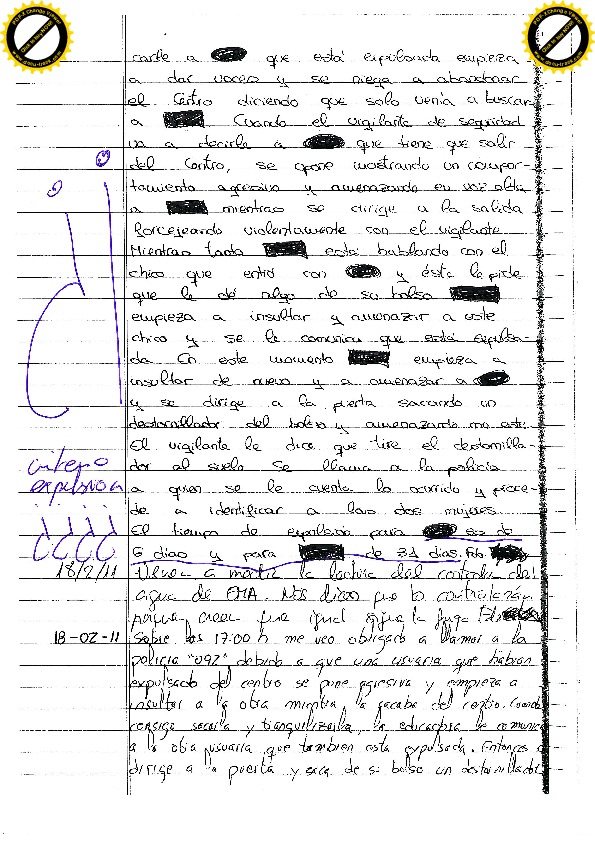 carle a que está expulsada empieza
a dar voces y se niega a abandonar
el Centro diciendo que solo venía a buscar
a Cuando el vigilante de seguridad
va a decirle a que tiene que salir
del Centro, se opone mostrando un compor-
tamiento agresivo y amenazando en voz alta
a mientras se dirige a la salida
forcejeando violentamente con el vigilante
Mientras tanto está hablando con el
chico que entró con y ésta le pide
que le dé algo de su bolso
empieza a insultar y amenazar a este
chico y se le comunica que está expulsa-
da En este momento empieza a
insultar de nuevo y a amenazar a
y se dirige a la puerta sacando un
destornillador del bolso y amenazando
El vigilante le dice que tire el destornilla-
dor al suelo Se llama a la policía
a quien se le cuenta lo ocurrido y proce-
de a identificar a las dos mujeres
expulsion
El tiempo de expulsión para es de
6 días y para de 31 días.
18/2/11
Vienen a mirar la lectura del contador del
agua de EMA. Nos dicen que lo controlarán
porque creen que igual sigue la fuga
18-02-11
Sobre las 17:00 h me veo obligado a llamar a la
policia "092" debido a que una usuaria que habian
expulsado del centro se pone agresiva y empieza a
insultar a la otra mientra la sacaba del centro. Cuando
consigo sacarla y tranquilizarla, la educadora le comunica
a la otra usuaria que tambien esta expulsada. Entonces
dirige a la puerta y saca de su bolso un destornillador